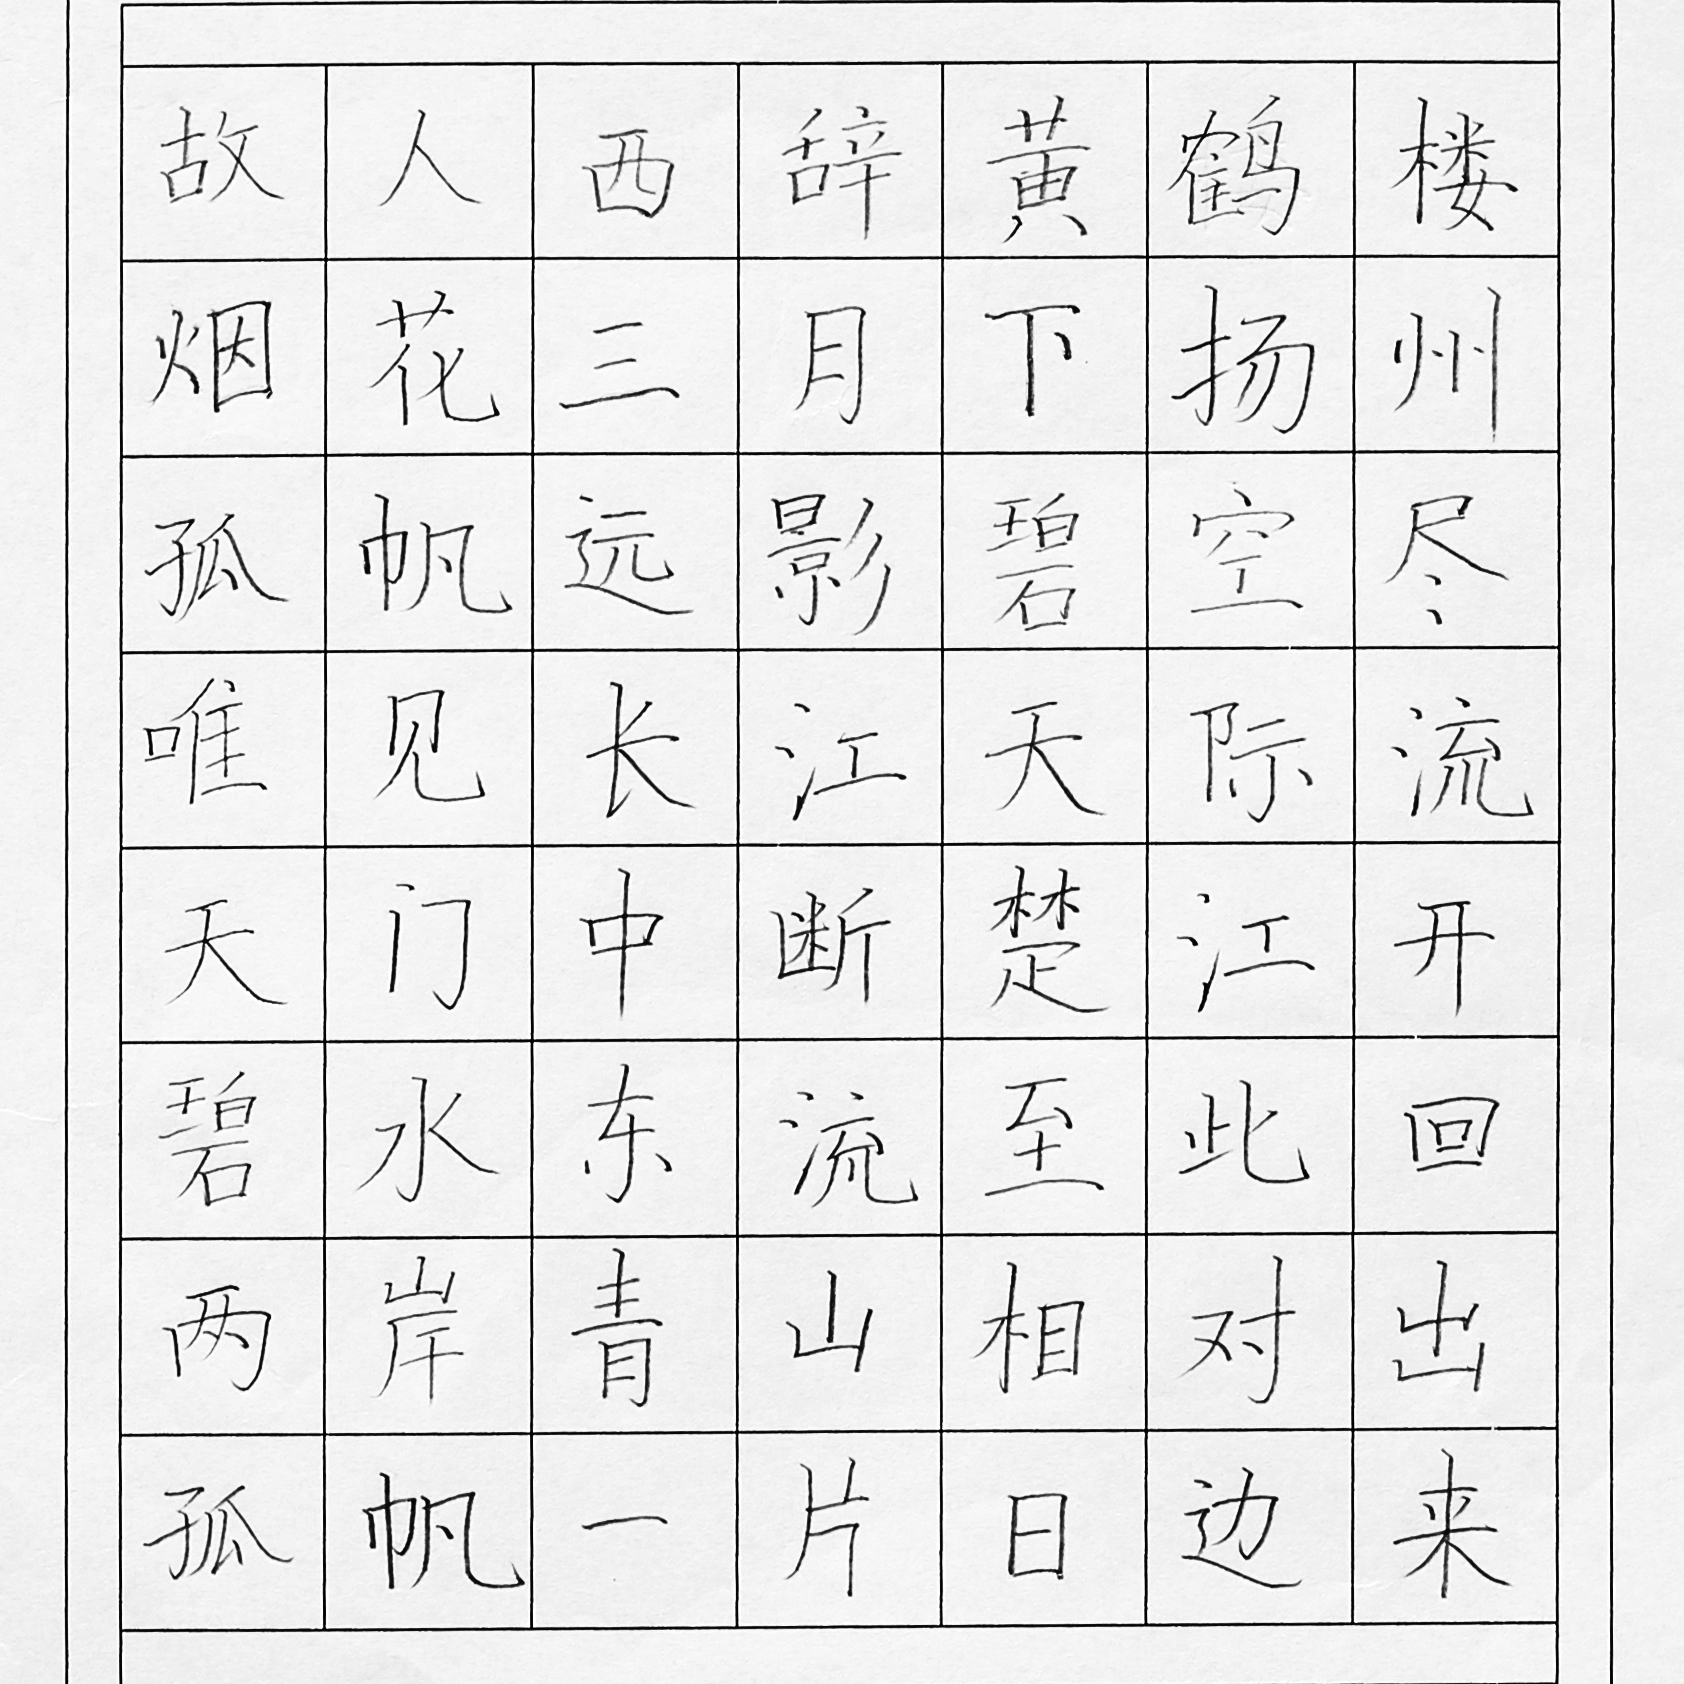 故人西辞黄鹤楼
烟花三月下扬州
孤帆远影碧空尽
唯见长江天际流
天门中断楚江开
碧水东流至此回
两岸青山相对出
孤帆一片日边来